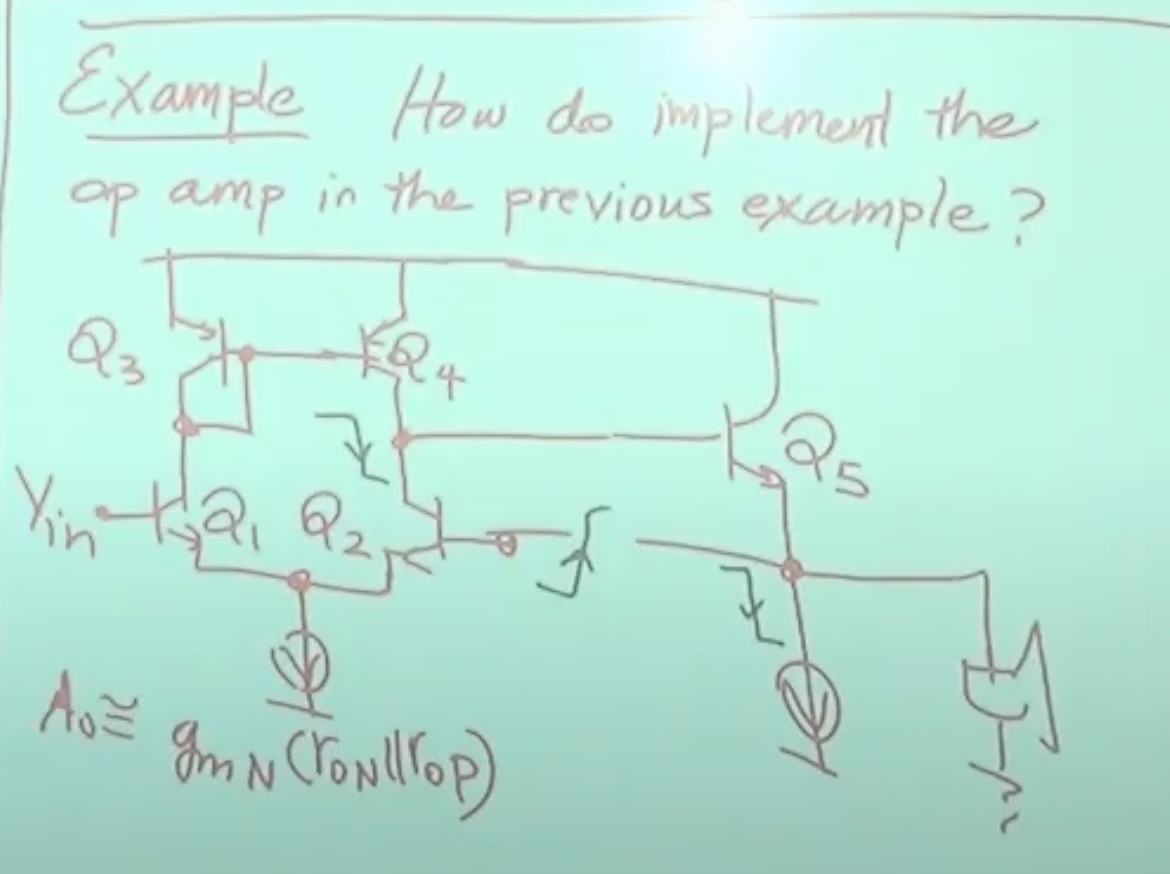 Example How do implement the
op amp in the previous example?
Q3
Q4
Q5
Vin
Q1
Q2
A0 ≅ gmN (rON||rOP)